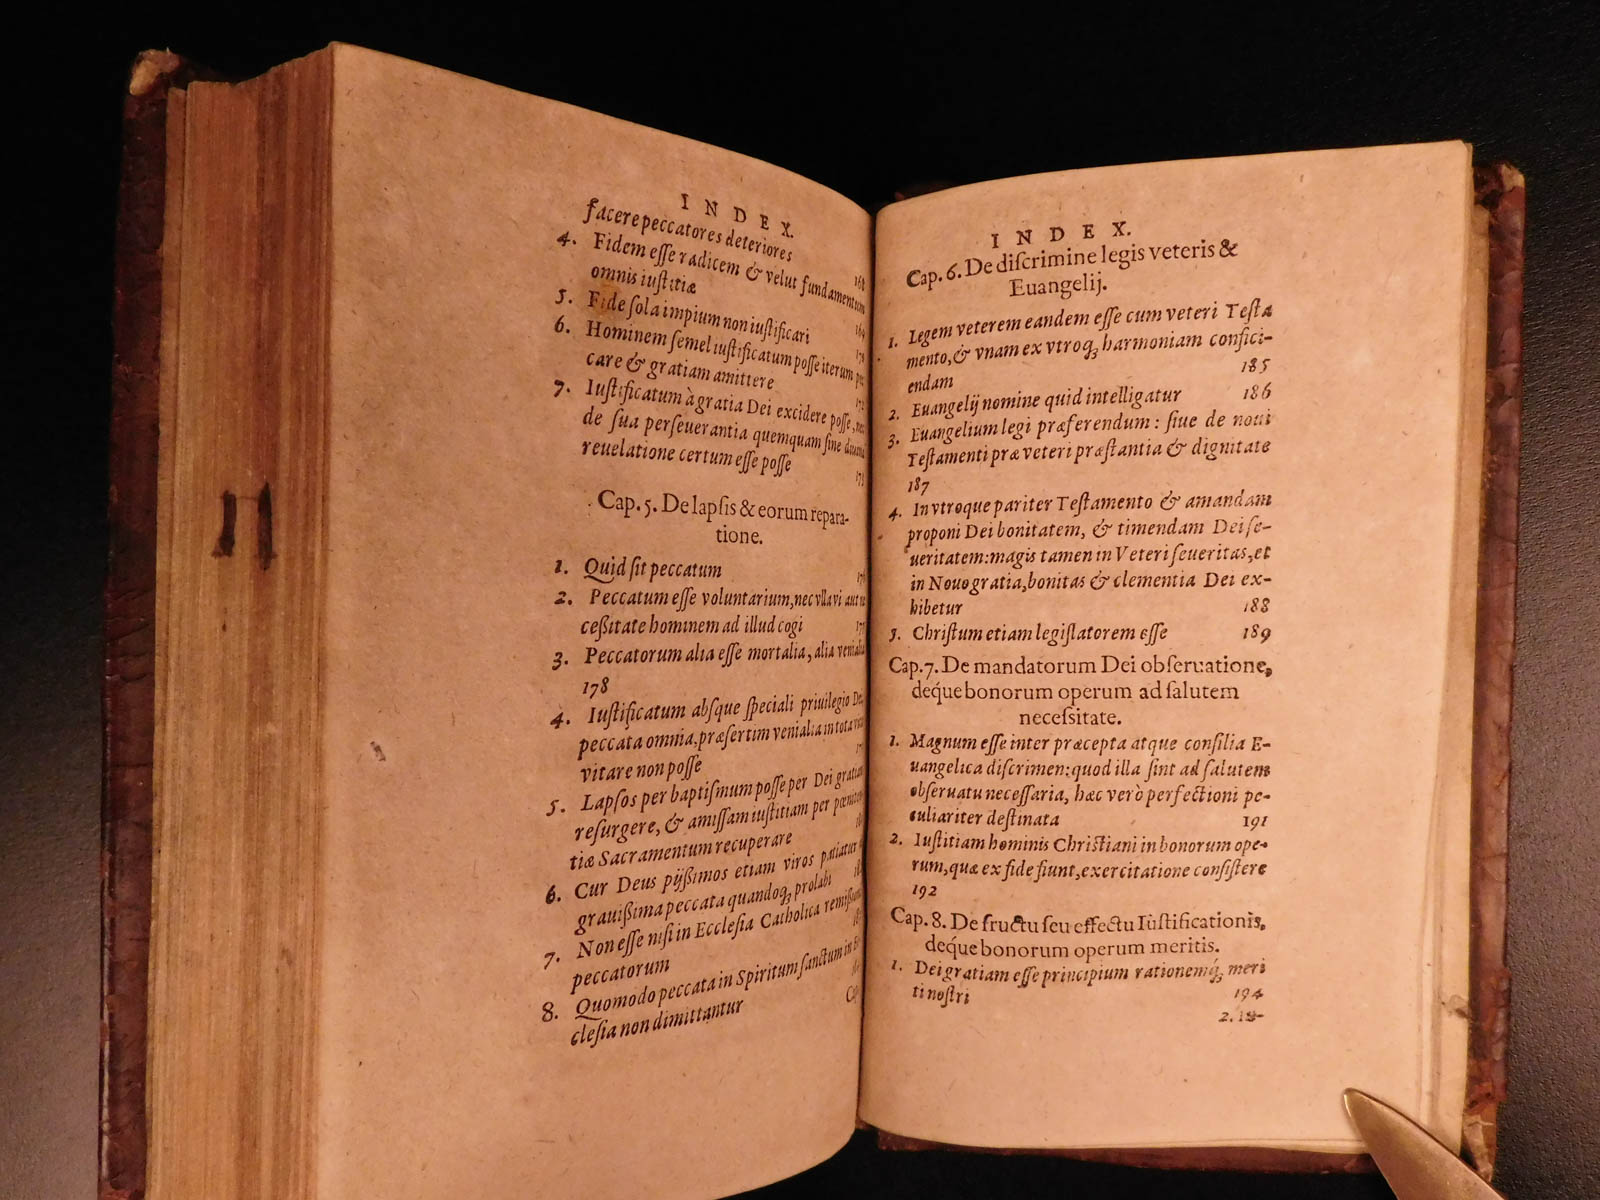 INDEX.
facere peccatores deteriores 168
4. Fidem esse radicem & velut fundamentum
omnis iustitiæ 169
5. Fide sola impium non iustificari
6. Hominem semel iustificatum posse iterum
care & gratiam amittere
7. Iustificatum à gratia Dei excidere posse, nec
de sua perseuerantia quemquam sine diuina
reuelatione certum esse posse
Cap. 5. De lapsis & eorum repara-
tione.
1. Quid sit peccatum
2. Peccatum esse voluntarium, nec vlla vi aut
ceßitate hominem ad illud cogi
3. Peccatorum alia esse mortalia, alia venialia
178
4. Iustificatum absque speciali priuilegio
peccata omnia, præsertim venialia in tota
vitare non posse
5. Lapsos per baptismum posse per Dei gratiam
resurgere, & amissam iustitiam per pœniten
tiæ Sacramentum recuperare
6. Cur Deus pijßimos etiam viros patiatur
grauißima peccata quandoq; prolabi
7. Non esse nisi in Ecclesia Catholica remißionem
peccatorum
8. Quomodo peccata in Spiritum sanctum in
clesia non dimittantur
INDEX.
Cap. 6. De discrimine legis veteris &
Euangelij.
1. Legem veterem eandem esse cum veteri Testa
mento, & vnam ex vtroq; harmoniam confici-
endam 185
2. Euangelij nomine quid intelligatur 186
3. Euangelium legi præferendum: siue de noui
Testamenti præ veteri præstantia & dignitate
187
4. In vtroque pariter Testamento & amandam
proponi Dei bonitatem, & timendam Dei se-
ueritatem: magis tamen in Veteri seueritas, et
in Nouo gratia, bonitas & clementia Dei ex-
hibetur 188
5. Christum etiam legislatorem esse 189
Cap. 7. De mandatorum Dei obseruatione,
deque bonorum operum ad salutem
necessitate.
1. Magnum esse inter præcepta atque consilia E-
uangelica discrimen: quod illa sint ad salutem
obseruatu necessaria, hæc verò perfectioni pe-
culiariter destinata 191
2. Iustitiam hominis Christiani in bonorum ope-
rum, quæ ex fide fiunt, exercitatione consistere
192
Cap. 8. De fructu seu effectu Iustificationis,
deque bonorum operum meritis.
1. Dei gratiam esse principium rationemq́; meri
ti nostri 194